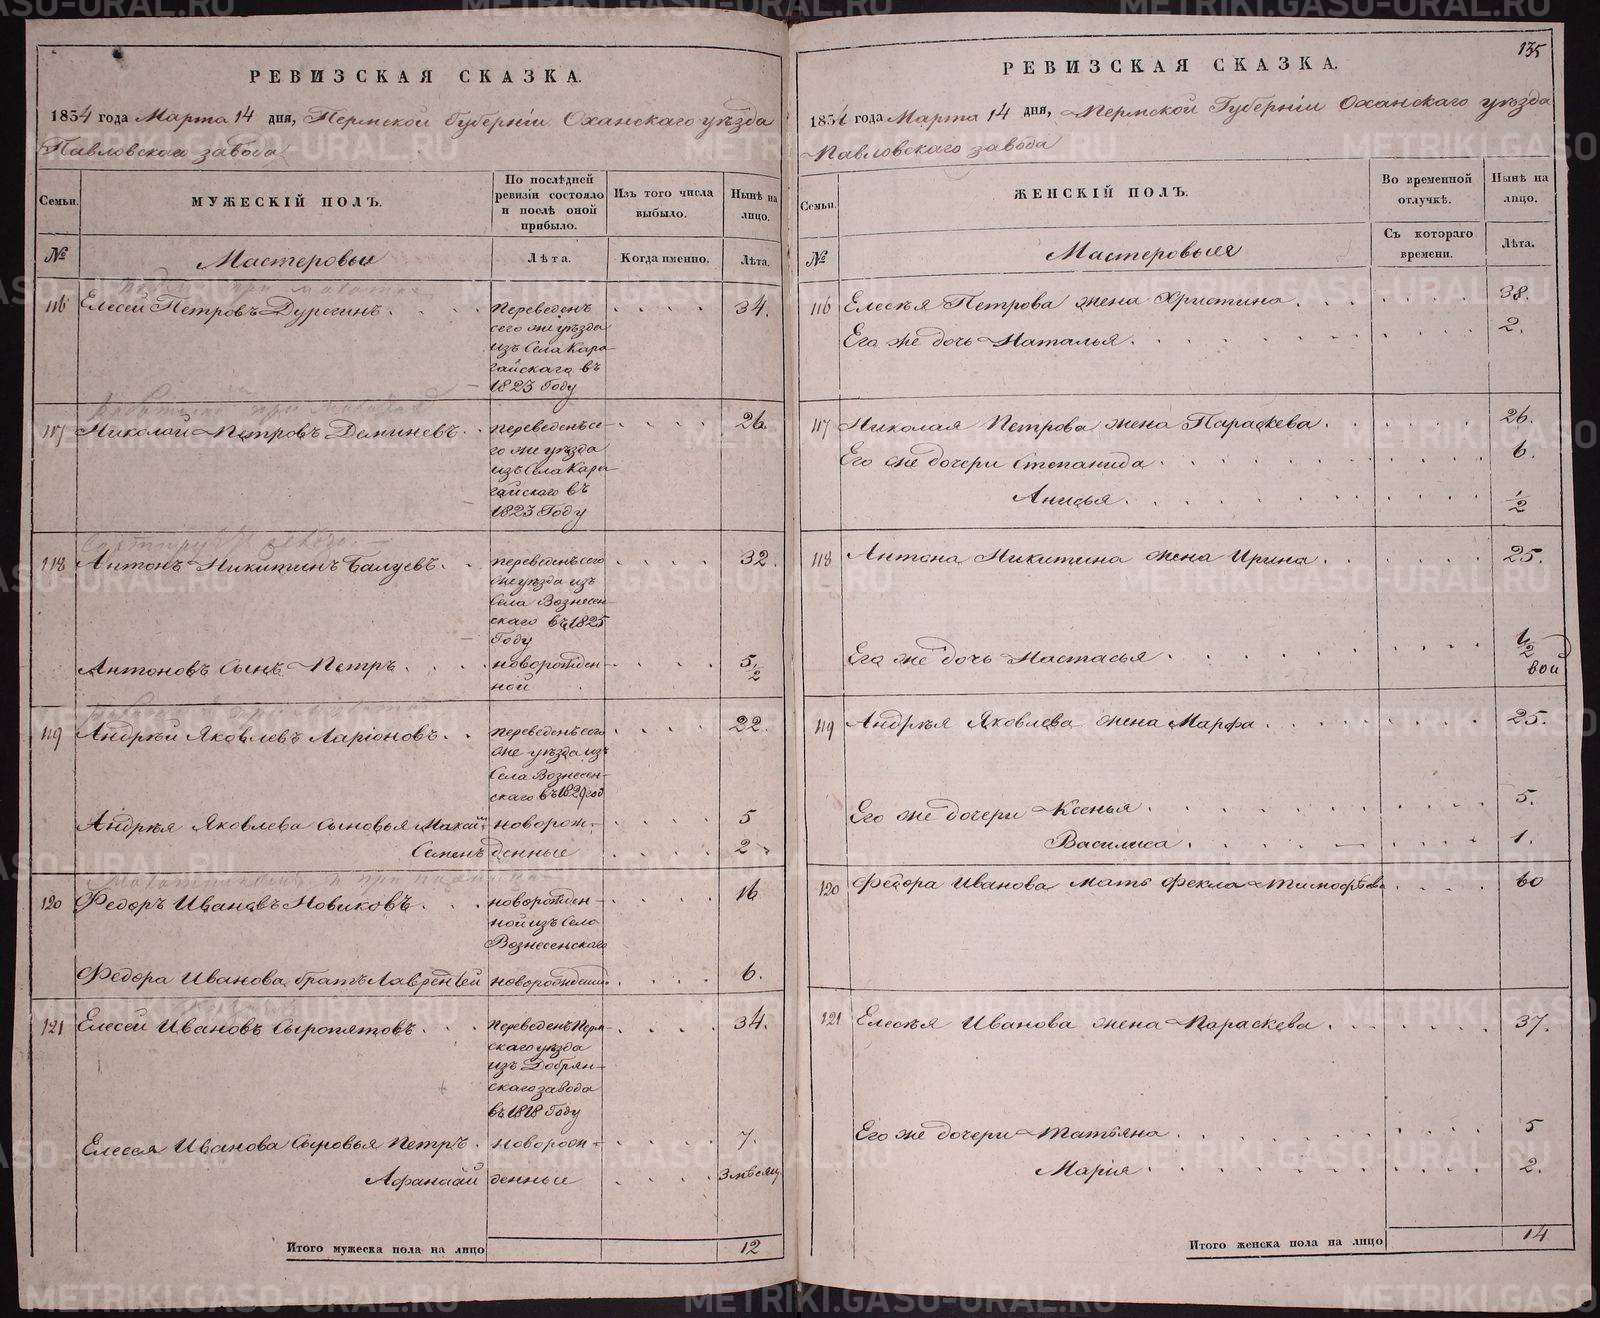 РЕВИЗСКАЯ СКАЗКА.
1834 года Марта 14 дня, Пермской Губерніи Оханскаго уѣзда
Павловскаго завода
Семьи.
МУЖЕСКІЙ ПОЛЪ.
По послѣдней ревизіи состояло и послѣ оной прибыло.
Изъ того числа выбыло.
Нынѣ на лицо.
№
Мастеровыи
Лѣта.
Когда именно.
Лѣта.
116 Елесей Петровъ Дурегинъ. Переведенъ 34.
сего же уѣзда
изъ Села Кара
гайскаго въ
1823 Году
117 Николай Петровъ Деминевъ. переведенъ се- 26.
го же уѣзда
изъ Села Кара
гайскаго въ
1823 Году
118 Антонъ Никитинъ Балуевъ. переведенъ сего 32.
же уѣзда изъ
Села Вознесен
скаго въ 1825
Году
Антоновъ Сынъ Петръ новорожден- 5 1/2
ной
119 Андрѣй Яковлевъ Ларіоновъ. переведенъ сего 22.
же уѣзда изъ
Села Вознесен-
скаго въ год
Андрѣя Яковлева Сыновья новорож- 5
Семенъ денные 2
120 Федоръ Ивановъ Новиковъ. новорожден- 16
ной изъ Села
Вознесенскаго
Федора Иванова братъ Лаврентей 6.
121 Елесей Ивановъ Сыропятовъ. Переведенъ Перм- 34.
скаго уѣзда
изъ Добрян-
скаго завода
въ 1818 Году
Елесея Иванова Сыновья Петръ. новорож- 7.
Афанасій денные 3 мѣсяц
Итого мужеска пола на лицо 12
135
РЕВИЗСКАЯ СКАЗКА.
1834 года Марта 14 дня, Пермской Губерніи Оханскаго уѣзда
Павловскаго завода
Семьи.
ЖЕНСКІЙ ПОЛЪ.
Во временной отлучкѣ.
Нынѣ на лицо.
№
Мастеровыя
Съ котораго времени.
Лѣта.
116 Елесѣя Петрова жена Христина 38.
Его же дочь Наталья. 2.
117 Николая Петрова жена Параскева. 26.
Его же дочери Степанида 6.
Анисья. 1/2
118 Антона Никитина жена Ирина 25.
Его же дочь Настасья 1/2
вой
119 Андрѣя Яковлева жена Марфа 25.
Его же дочери Ксенья 5.
Василиса 1.
120 Федора Иванова мать Фекла Тимофѣева 60
121 Елесѣя Иванова жена Параскева 37.
Его же дочери Татьяна 5
Марія 2.
Итого женска пола на лицо 14
METRIKI.GASO-URAL.RU